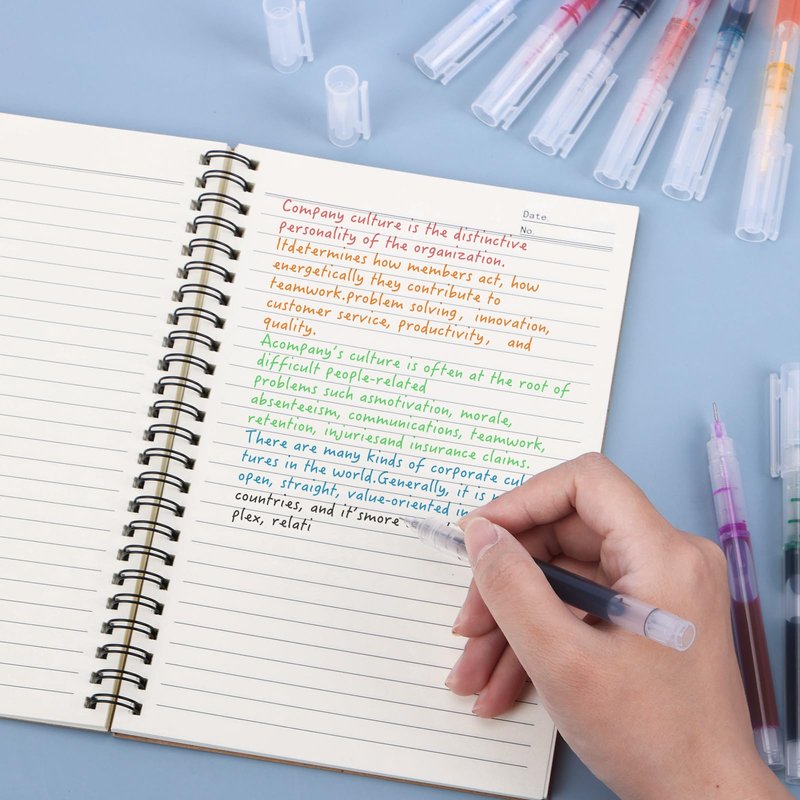 Date
No.
Company culture is the distinctive
personality of the organization.
Itdetermines how members act, how
energetically they contribute to
teamwork.problem solving, innovation,
customer service, productivity, and
quality.
Acompany's culture is often at the root of
difficult people-related
problems such asmotivation, morale,
absenteeism, communications, teamwork,
retention, injuriesand insurance claims.
There are many kinds of corporate cul
tures in the world.Generally, it is
open, straight, value-oriented in
countries, and it'smore
plex, relati